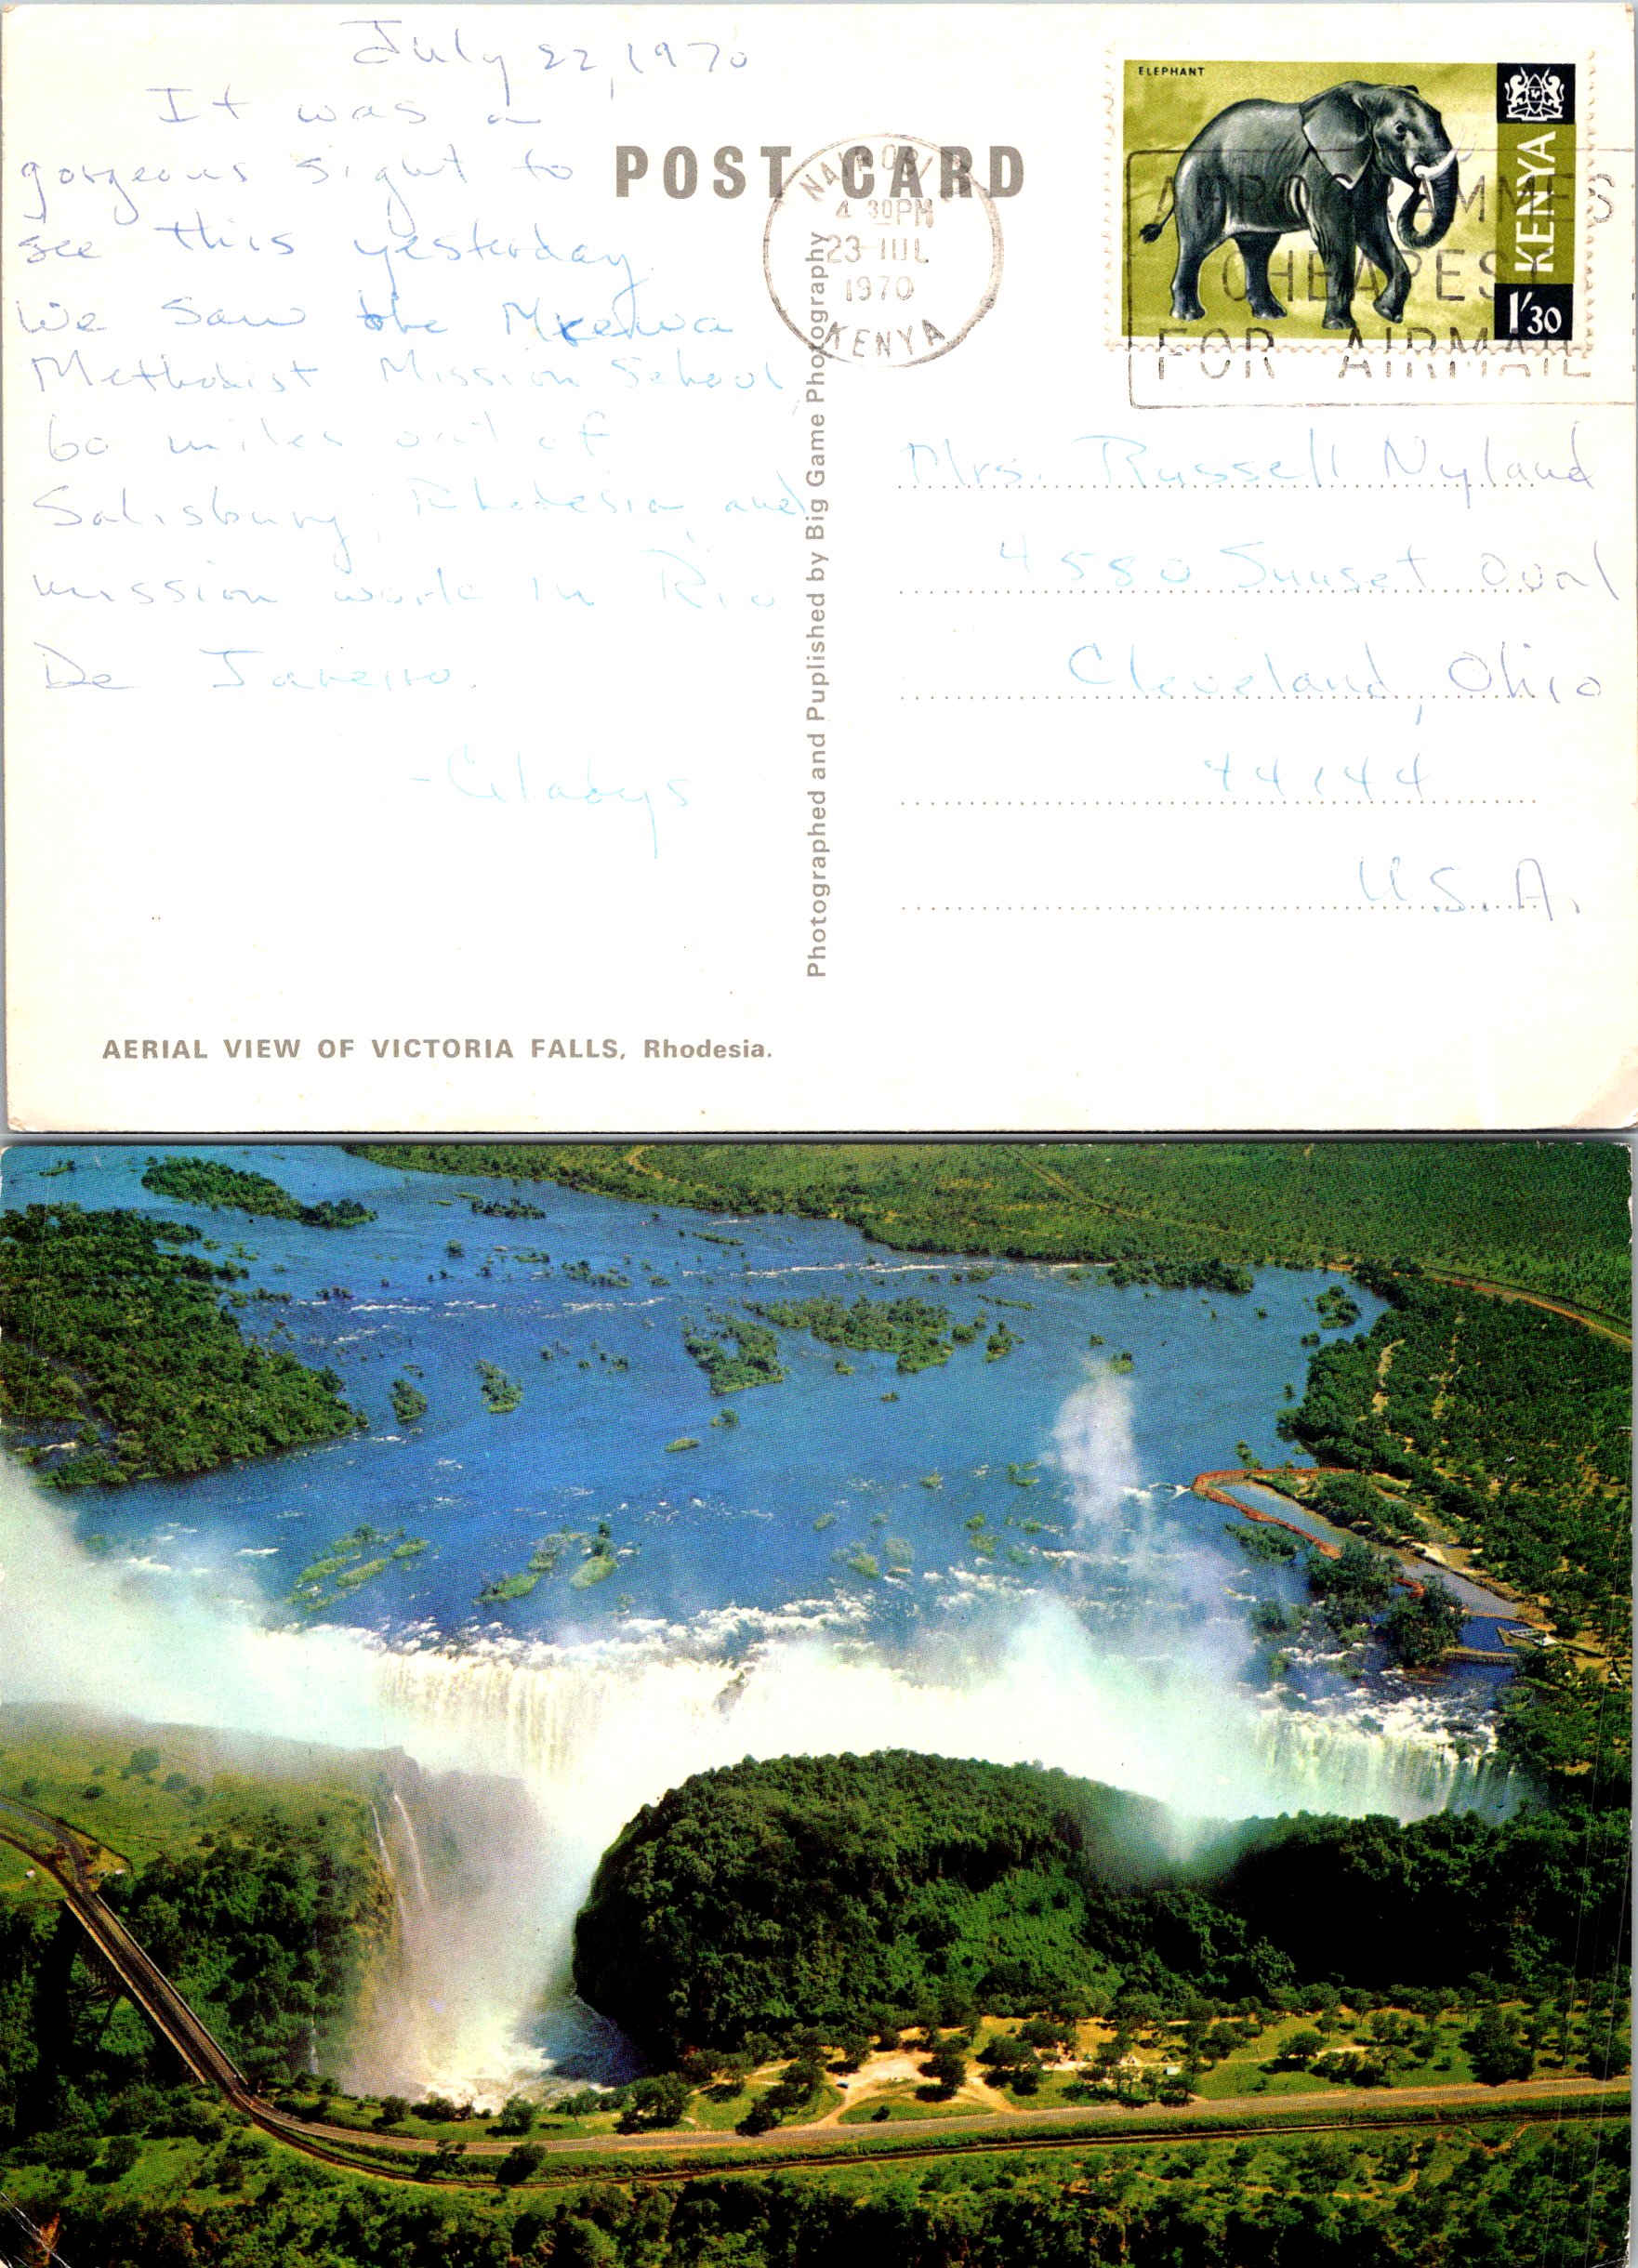 July 22, 1970
It was a
gorgeous sight to
see this yesterday.
We saw the
Methodist Mission School,
60 miles out of
Salisbury, Rhodesia, and
mission work in Rio
De Janeiro.
-Gladys
AERIAL VIEW OF VICTORIA FALLS, Rhodesia.
POST CARD
Photographed and Puplished by Big Game Photography
NAIROBI
4 30PM
23 JUL
1970
KENYA
ELEPHANT
KENYA
1/30
AEROGRAMMES
CHEAPEST
FOR AIRMAIL
Mrs. Russell Nyland
4580 Sunset Oval
Cleveland, Ohio
44144
U.S.A.